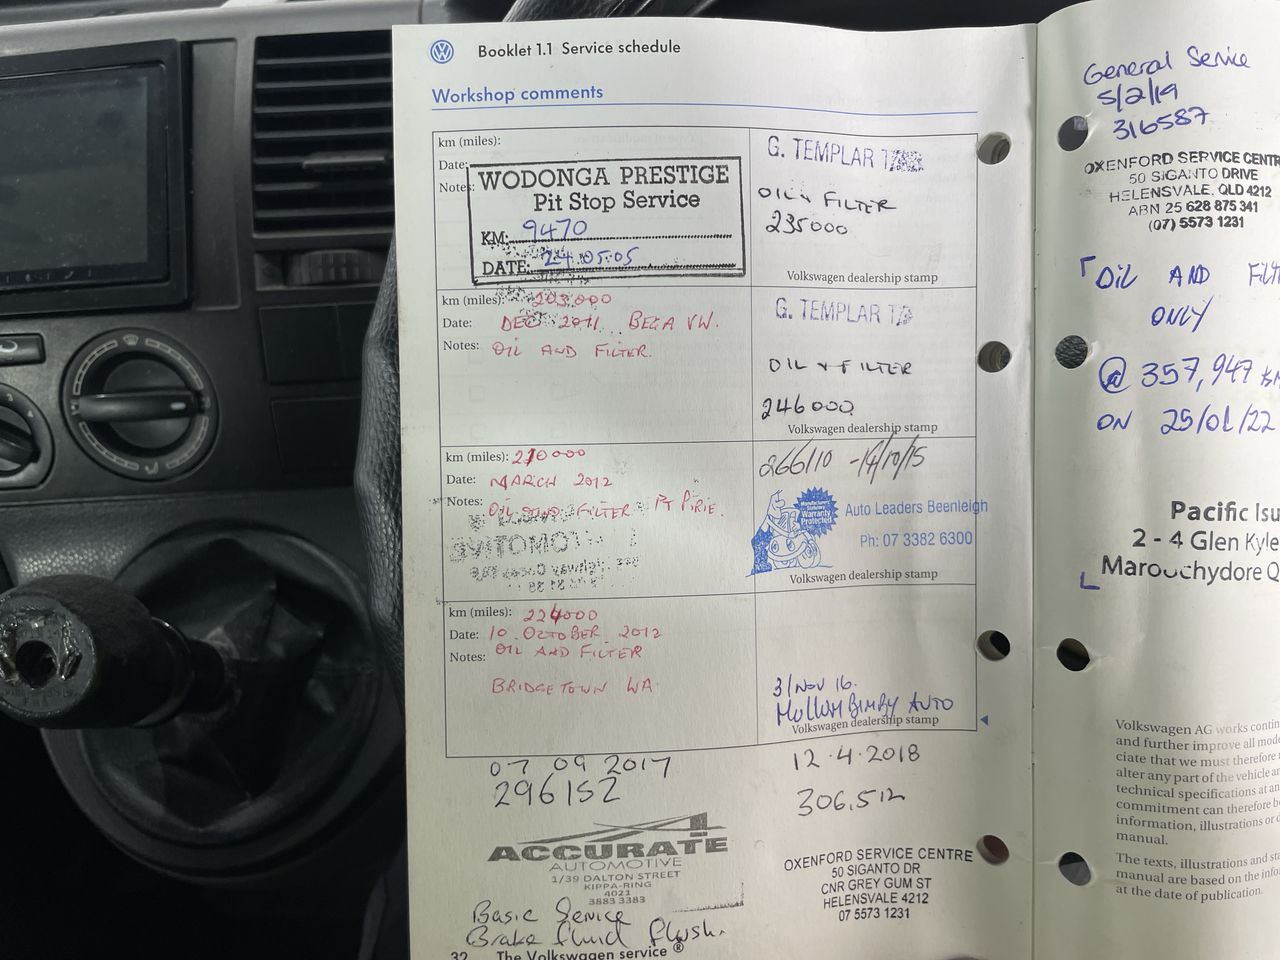 Booklet 1.1 Service schedule
Workshop comments
km (miles):
Date:
Notes:
WODONGA PRESTIGE
Pit Stop Service
KM: 9470
DATE: 24.05.05
G. TEMPLAR
OIL & FILTER
235000
Volkswagen dealership stamp
km (miles): 203000
Date: DEC 2011 BEGA VW.
Notes: OIL AND FILTER.
G. TEMPLAR
OIL + FILTER
246000
Volkswagen dealership stamp
km (miles): 210000
Date: MARCH 2012
Notes: OIL AND FILTER PT PIRIE.
266110 -14/10/15
Auto Leaders Beenleigh
Ph: 07 3382 6300
Volkswagen dealership stamp
km (miles): 224000
Date: 10 OCTOBER 2012
Notes: OIL AND FILTER
BRIDGETOWN WA.
3/NOV 16.
MULLUMBIMBY AUTO
Volkswagen dealership stamp
07 09 2017
296152
ACCURATE
AUTOMOTIVE
1/39 DALTON STREET
KIPPA-RING
4021
3883 3383
Basic Service
Brake fluid flush.
32 The Volkswagen service ®
12.4.2018
306,512
OXENFORD SERVICE CENTRE
50 SIGANTO DR
CNR GREY GUM ST
HELENSVALE 4212
07 5573 1231
General Service
5/2/19
316587
OXENFORD SERVICE CENTR
50 SIGANTO DRIVE
HELENSVALE, QLD 4212
ARN 25 628 875 341
(07) 5573 1231
OIL AND FILT
ONLY
@ 357,947 KM
ON 25/01/22
Pacific Isu
2 - 4 Glen Kyle
Maroochydore Q
Volkswagen AG works contin
and further improve all mode
ciate that we must therefore
alter any part of the vehicle
technical specifications at an
commitment can therefore b
information, illustrations or
manual.
The texts, illustrations and sta
manual are based on the info
at the date of publication.